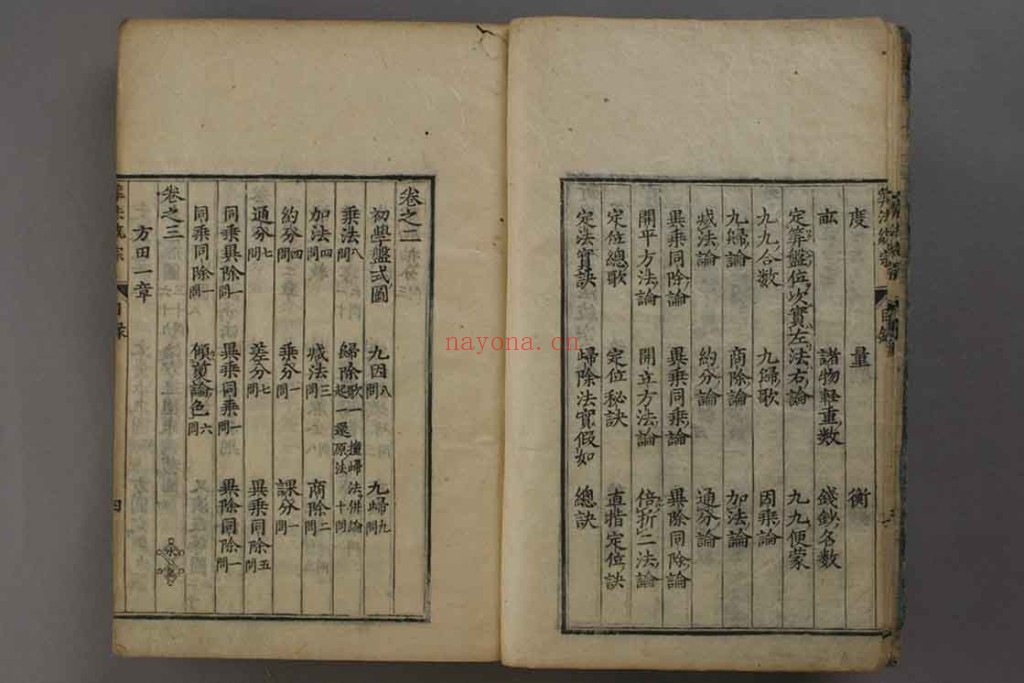 度 量 衡
畝 諸物輕重數 錢鈔名數
定算盤位次實左法右論
九九合數 九歸歌 九九便蒙
九歸論 商除論 因乘論
減法論 約分論 加法論
異乘同除論 異乘同乘論 通分論
開平方法論 開立方法論 異除同除論
定位總歌 定位秘訣 倍折二法論
定法實訣 歸除法實假如 直指定位訣
總訣
卷之二
初學盤式圖 九因八問 九歸九問
乘法八問 歸除歌一起一還原法 撞歸法併論十問
加法四問 減法三問 商除二問
約分四問 乘分一問 課分一問
通分七問 差分七問 異乘同除五問
同乘異除一問 異乘同乘一問 異除同除一問
同乘同除一問 傾煎論色六問
卷之三
方田一章
目錄
四
nayona.cn